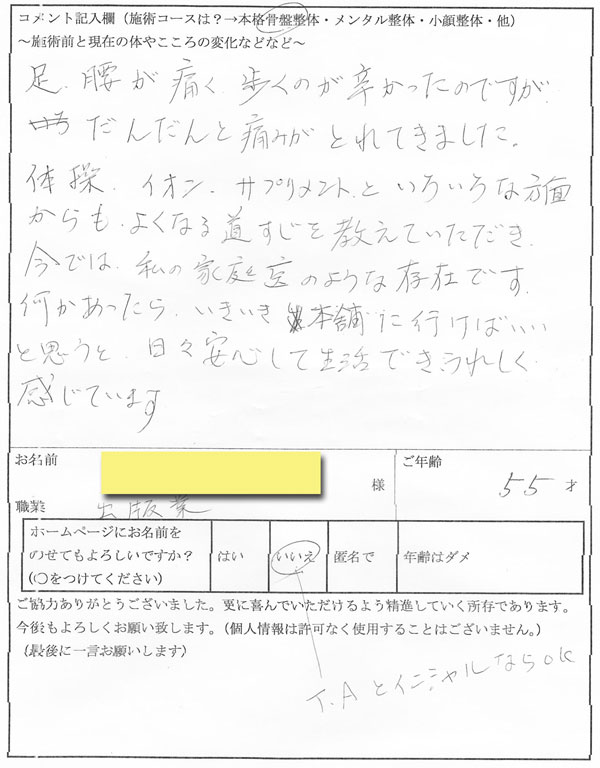 コメント記入欄（施術コースは？→本格骨盤整体・メンタル整体・小顔整体・他）
～施術前と現在の体やこころの変化などなど～
足、腰が痛く、歩くのが辛かったのですが、
だんだんと痛みがとれてきました。
体操、イオン、サプリメント、といろいろな方面
からも、よくなる道すじを教えていただき、
今では、私の家庭医のような存在です。
何かあったら、いきいき本舗に行けばいい
と思うと、日々安心して生活できうれしく
感じています
お名前 様 ご年齢 55才
職業 出版業
ホームページにお名前を
のせてもよろしいですか？ はい いいえ 匿名で 年齢はダメ
（〇をつけてください）
ご協力ありがとうございました。更に喜んでいただけるよう精進していく所存であります。
今後もよろしくお願い致します。（個人情報は許可なく使用することはございません。）
（最後に一言お願いします）
T.AとイニシャルならOK